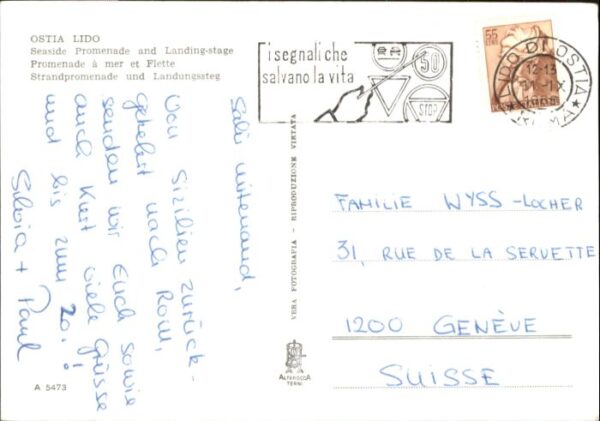 OSTIA LIDO
Seaside Promenade and Landing-stage
Promenade à mer et Flette
Strandpromenade und Landungssteg
Salü mitenand,
Von Sizilien zurück-
gekehrt nach Rom,
senden wir Euch sowie
auch Kurt viele Grüsse
und bis zum 20.!
Silvia + Paul
A 5473
VERA FOTOGRAFIA - RIPRODUZIONE VIETATA
ALTEROCCA
TERNI
i segnali che
salvano la vita
50
STOP
55
LIDO DI OSTIA
12-13
IX
ROMA
FAMILIE WYSS-LOCHER
31, RUE DE LA SERVETTE
1200 GENÈVE
SUISSE